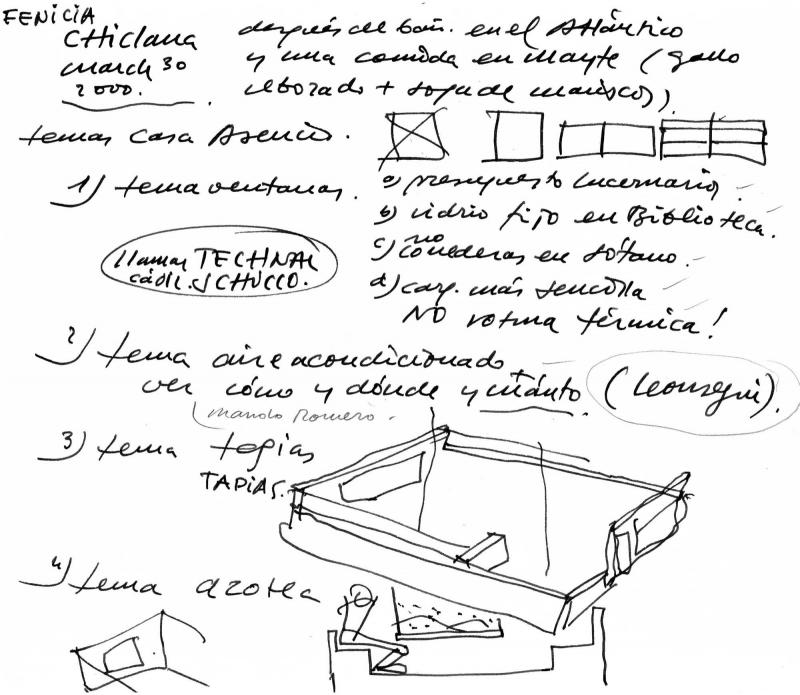 FENICIA
Chiclana
march 30
2000.
después del bañ. en el Atlántico
y una comida en Mayte (gallo
rebozado + sopa de marisco).
temas casa Asencio.
1) tema ventanas.
a) presupuesto Lucernario
b) vidrio fijo en Biblioteca.
c) no correderas en sótano.
d) carp. más sencilla
NO rotura térmica!
llamar TECHNAL
cádiz. SCHUCCO.
2) tema aire acondicionado
ver cómo y dónde y cuánto. (
Manolo Romero.
3) tema tapias
TAPIAS.
4) tema azotea